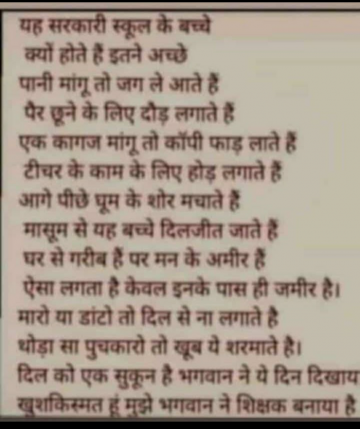 यह सरकारी स्कूल के बच्चे
क्यों होते हैं इतने अच्छे
पानी मांगू तो जग ले आते हैं
पैर छूने के लिए दौड़ लगाते हैं
एक कागज मांगू तो कॉपी फाड़ लाते हैं
टीचर के काम के लिए होड़ लगाते हैं
आगे पीछे घूम के शोर मचाते हैं
मासूम से यह बच्चे दिलजीत जाते हैं
घर से गरीब हैं पर मन के अमीर हैं
ऐसा लगता है केवल इनके पास ही जमीर है।
मारो या डांटो तो दिल से ना लगाते है
थोड़ा सा पुचकारो तो खूब ये शरमाते है।
दिल को एक सुकून है भगवान ने ये दिन दिखाय
खुशकिस्मत हूं मुझे भगवान ने शिक्षक बनाया है